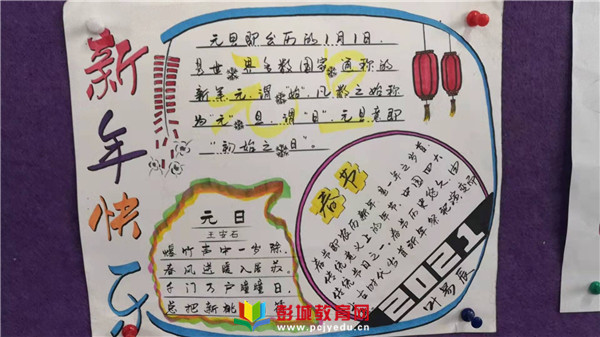 新年快乐
元旦即公历的1月1日,
是世界多数国家通称的
新年元,谓"始",凡数之始称
为"元";旦,谓"日";元旦意即
"初始之日"。
元日
王安石
爆竹声中一岁除,
春风送暖入屠苏。
千门万户曈曈日,
总把新桃
春节
春节即农历新年,是一年之岁首、
传统意义上的年节。
中国四大
传统节日之一。春节历史悠久,由
上古时代岁首祈年祭祀演变而
2021
叶易辰
彭城教育网
www.pcjyedu.cn